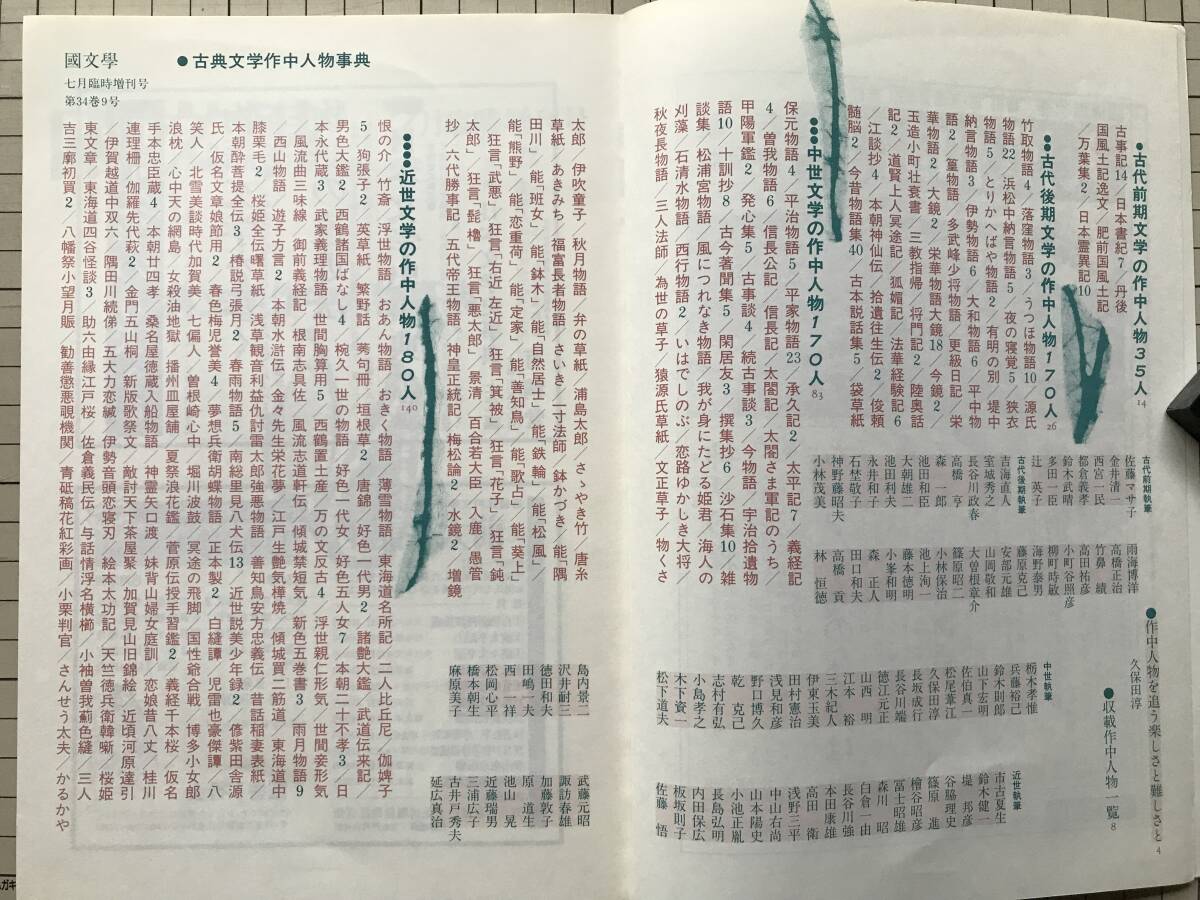 國文學
●古典文学作中人物事典
七月臨時増刊号
第34巻9号
●作中人物を追う楽しさと難しさと 4
久保田淳
●収載作中人物一覧 8
●古代前期文学の作中人物35人 14
古事記14／日本書紀7／丹後
国風土記逸文／肥前国風土記
／万葉集2／日本霊異記10
●●古代後期文学の作中人物170人 26
竹取物語4／落窪物語3／うつほ物語10／源氏
物語22／浜松中納言物語5／夜の寝覚5／狭衣
物語5／とりかへばや物語2／有明の別／堤中
納言物語3／伊勢物語6／大和物語6／平中物
語2／篁物語3／多武峰少将物語／更級日記／栄
華物語2／大鏡2／栄華物語大鏡18／今鏡2／
玉造小町壮衰書／三教指帰／将門記2／陸奥話
記2／道賢上人冥途記／狐媚記／法華経験記6
／江談抄4／本朝神仙伝／拾遺往生伝2／俊頼
随脳2／今昔物語集40／古本説話集5／袋草紙
●●●中世文学の作中人物170人 83
保元物語4／平治物語5／平家物語23／承久記2／太平記7／義経記
4／曽我物語6／信長公記／信長記／太閤記／太閤さま軍記のうち／
甲陽軍鑑2／発心集5／古事談4／続古事談3／今物語／宇治拾遺物
語10／十訓抄8／古今著聞集5／閑居友3／撰集抄6／沙石集10／雑
談集／松浦宮物語／風につれなき物語／我が身にたどる姫君／海人の
刈藻／石清水物語／西行物語2／いはでしのぶ／恋路ゆかしき大将／
秋夜長物語／三人法師／為世の草子／猿源氏草紙／文正草子／物くさ
太郎／伊吹童子／秋月物語／弁の草紙／浦島太郎／さゝやき竹／唐糸
草紙／あきみち／福富長者物語／さいき／一寸法師／鉢かづき／能「隅
田川」／能「班女」／能「鉢木」／能「自然居士」／能「鉄輪」／能「松風」／
能「熊野」／能「恋重荷」／能「定家」／能「善知鳥」／能「歌占」／能「葵上」
／狂言「武悪」／狂言「右近左近」／狂言「箕被」／狂言「花子」／狂言「鈍
太郎」／狂言「髭櫓」／狂言「悪太郎」／景清／百合若大臣／入鹿／愚管
抄／六代勝事記／五代帝王物語／神皇正統記／梅松論2／水鏡2／増鏡
●●●●近世文学の作中人物180人 140
恨の介／竹斎／浮世物語／おあん物語／おきく物語／薄雪物語／東海道名所記／二人比丘尼／伽婢子
5／狗張子2／英草紙／繁野話／莠句冊／垣根草2／唐錦／好色一代男2／諸艶大鑑／武道伝来記／
男色大鑑2／西鶴諸国ばなし4／椀久一世の物語／好色一代女／好色五人女7／本朝二十不孝3／日
本永代蔵3／武家義理物語／世間胸算用5／西鶴置土産／万の文反古4／浮世親仁形気／世間妾形気
／風流曲三味線／御前義経記／根南志具佐／風流志道軒伝／傾城禁短気／新色五巻書3／雨月物語9
／西山物語／遊子方言2／本朝水滸伝／金々先生栄花夢／江戸生艶気樺焼／傾城買二筋道／東海道中
膝栗毛2／桜姫全伝曙草紙／浅草観音利益仇討雷太郎強悪物語／善知鳥安方忠義伝／昔話稲妻表紙／
本朝酔菩提全伝3／椿説弓張月2／春雨物語5／南総里見八犬伝13／近世説美少年録2／偐紫田舎源
氏／仮名文章娘節用2／春色梅児誉美4／夢想兵衛胡蝶物語／正本製2／白縫譚／児雷也豪傑譚／八
笑人／北雪美談時代加賀美／七偏人／曽根崎心中／堀川波鼓／冥途の飛脚／国性爺合戦／博多小女郎
浪枕／心中天の網島／女殺油地獄／播州皿屋舗／夏祭浪花鑑／菅原伝授手習鑑2／義経千本桜／仮名
手本忠臣蔵4／本朝廿四孝／桑名屋徳蔵入船物語／神霊矢口渡／妹背山婦女庭訓／恋娘昔八丈／桂川
連理柵／伽羅先代萩2／金門五山桐／新版歌祭文／敵討天下茶屋聚／加賀見山旧錦絵／近頃河原達引
／伊賀越道中双六／隅田川続俤／五大力恋緘／伊勢音頭恋寝刃／絵本太功記／天竺徳兵衛韓噺／桜姫
東文章／東海道四谷怪談3／助六由縁江戸桜／佐倉義民伝／与話情浮名横櫛／小袖曽我薊色縫／三人
吉三廓初買2／八幡祭小望月賑／勧善懲悪覗機関／青砥稿花紅彩画／小栗判官／さんせう太夫／かるかや
古代前期執筆
佐藤マサ子
金井清一
西宮一民
都倉義孝
鈴木武晴
多田一臣
辻英子
古代後期執筆
吉海直人
室城秀之
長谷川政春
高橋亨
森一郎
池田和臣
大朝雄二
池田利夫
永井和子
石埜敬子
神野藤昭夫
小林茂美
雨海博洋
高橋正治
竹鼻績
高田祐彦
小町谷照彦
柳町時敏
海野泰男
藤原克己
安部元雄
山岡敬和
大曽根章介
篠原昭二
小林保治
池上洵一
藤本徳明
小峯和明
森正人
田口和夫
高橋貢
林恒徳
中世執筆
栃木孝惟
兵藤裕己
鈴木則郎
山下宏明
佐伯真一
久保田淳
松尾葦江
長坂成行
長谷川端
徳江元正
山西明
江本裕
三木紀人
伊東玉美
田村憲治
浅見和彦
野口博久
乾克己
志村有弘
小島孝之
木下資一
松下道夫
島内景二
沢井耐三
徳田和夫
田嶋一夫
西一祥
松岡心平
橋本朝生
麻原美子
近世執筆
市古夏生
鈴木健一
堤邦彦
谷脇理史
篠原進
檜谷昭彦
冨士昭雄
森川昭
白倉一由
長谷川強
本田康雄
高田衛
浅野三平
中山右尚
山本陽史
小池正胤
長島弘明
内田保広
板坂則子
佐藤悟
武藤元昭
諏訪春雄
加藤敦子
原道生
池山晃
近藤瑞男
三浦広子
古井戸秀夫
延広真治